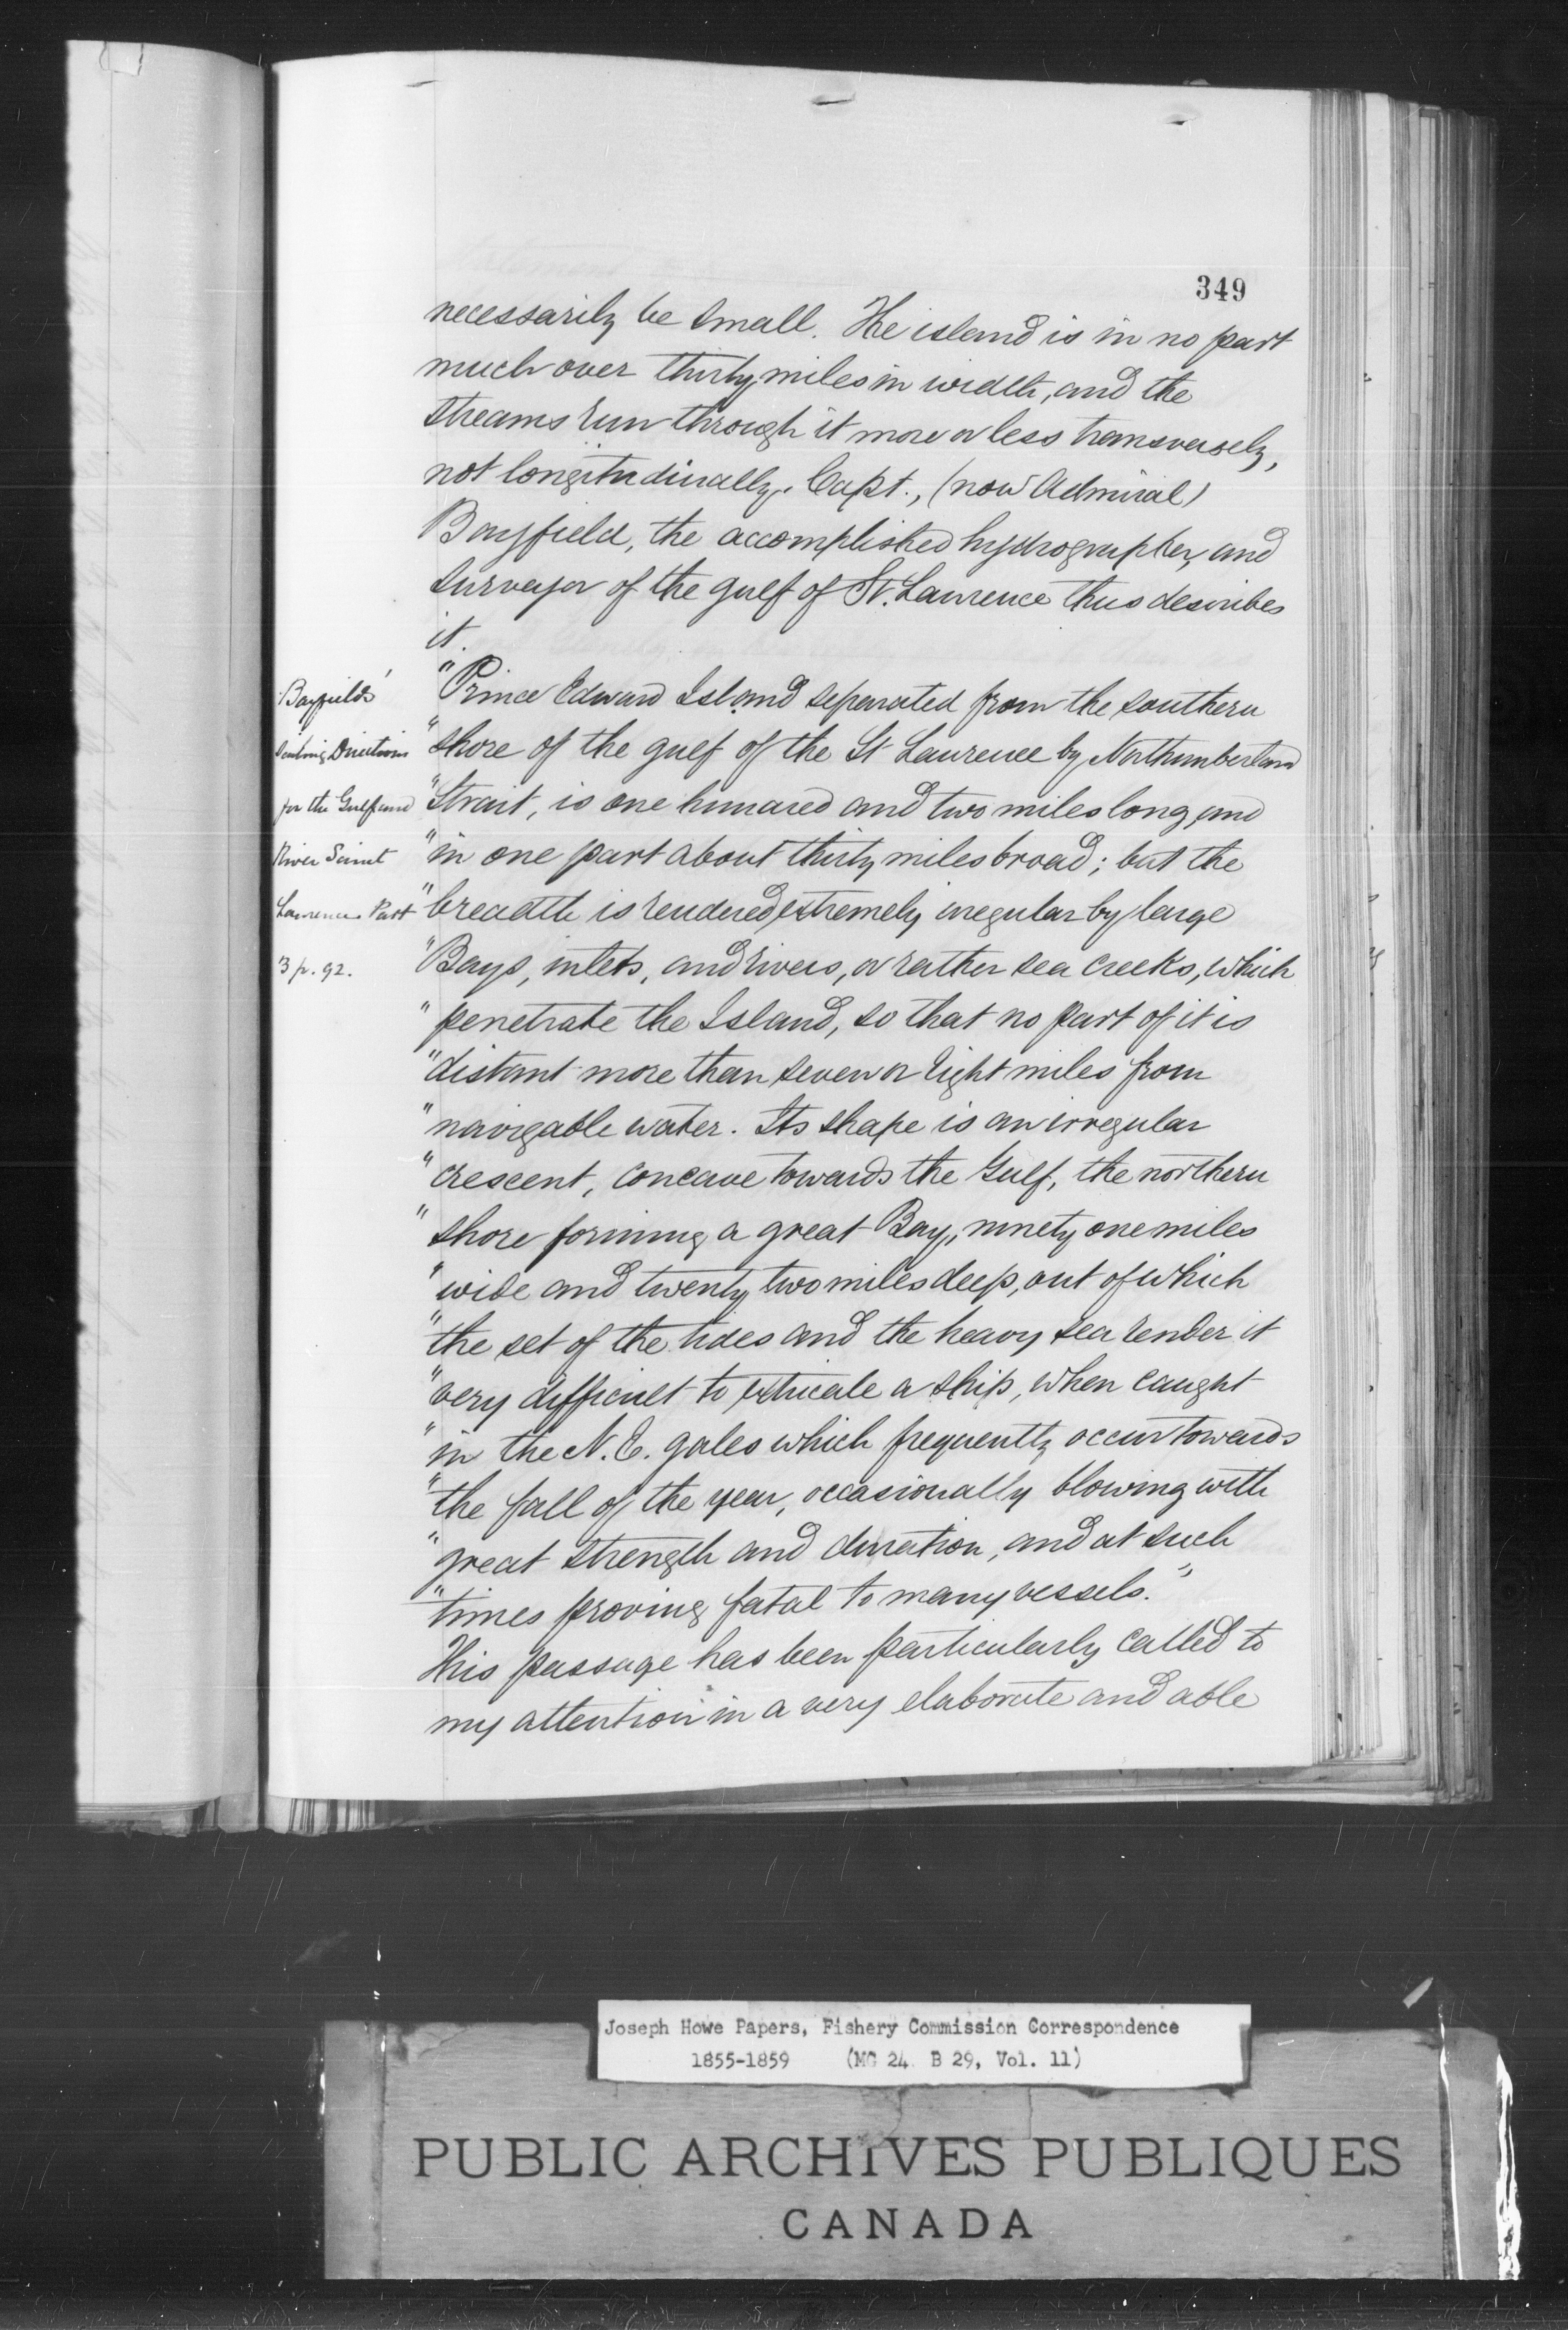 349
necessarily be small. The island is in no part
much over thirty miles in width, and the
streams run through it more or less transversely,
not longitudinally. Capt., (now Admiral)
Bayfield, the accomplished hydrographer, and
surveyor of the gulf of St. Lawrence thus describes
it.
Bayfield's
Sailing Directions
for the Gulf and
River Saint
Lawrence Part
3 p. 92.
"Prince Edward Island separated from the southern
"shore of the gulf of the St Lawrence by Northumberland
"Strait, is one hundred and two miles long, and
"in one part about thirty miles broad; but the
"breadth is rendered extremely irregular by large
"Bays, inlets, and rivers, or rather sea creeks, which
"penetrate the Island, so that no part of it is
"distant more than seven or eight miles from
"navigable water. Its shape is an irregular
"crescent, concave towards the Gulf, the northern
"shore forming a great Bay, ninety one miles
"wide and twenty two miles deep, out of which
"the set of the tides and the heavy sea render it
"very difficult to extricate a ship, when caught
"in the N.E. gales which frequently occur towards
"the fall of the year, occasionally blowing with
"great strength and duration, and at such
"times proving fatal to many vessels."
This passage has been particularly called to
my attention in a very elaborate and able
Joseph Howe Papers, Fishery Commission Correspondence
1855-1859 (MG 24 B 29, Vol. 11)
PUBLIC ARCHIVES PUBLIQUES
CANADA